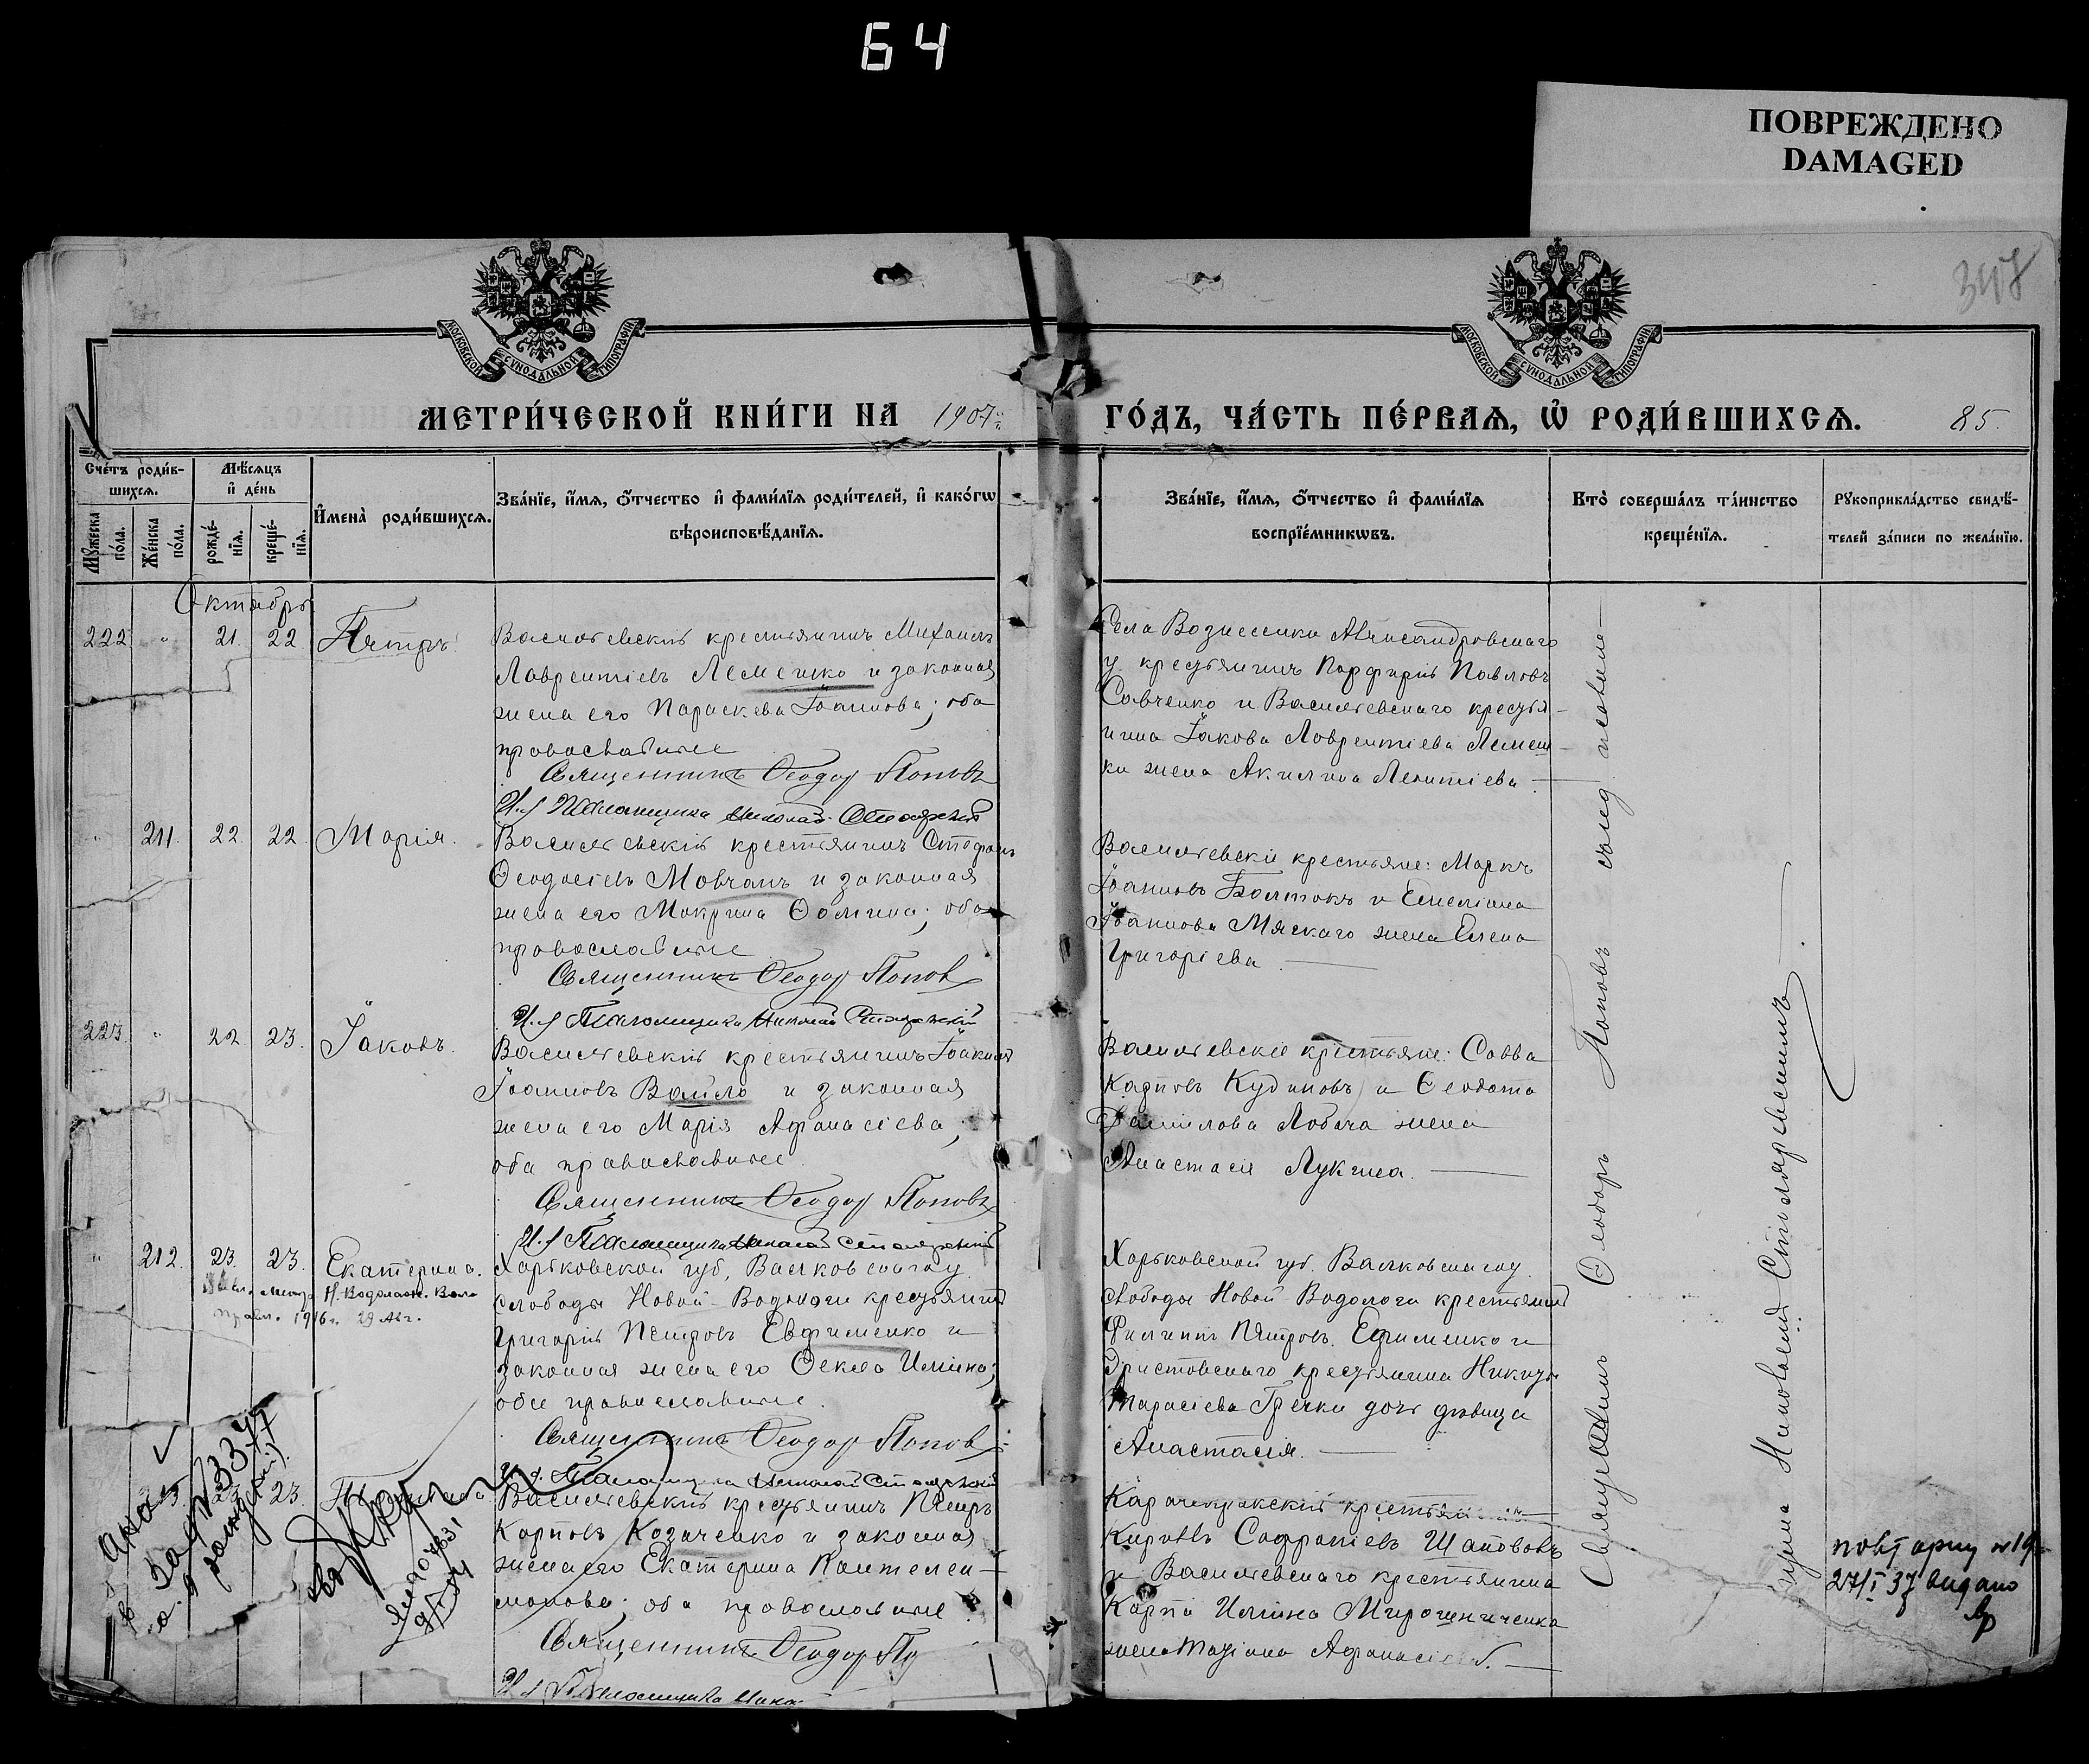 64
ПОВРЕЖДЕНО
DAMAGED
347
МОСКОВСКОЙ СѴНОДАЛЬНОЙ ТИПОГРАФІИ
МОСКОВСКОЙ СѴНОДАЛЬНОЙ ТИПОГРАФІИ
МЕТРИ́ЧЕСКОЙ КНИ́ГИ НА 1907 ГО́ДЪ, ЧА́СТЬ ПЕ́РВАЯ, Ѡ РОДИ́ВШИХСЯ. 85.
Сче́тъ роди́в-
шихся.
Мѣ́сяцъ
и де́нь
Мꙋжеска
по́ла.
Же́нска
по́ла.
рожде́-
нїя.
креще́-
нїя.
И҆мена̀ роди́вшихся.
Зва́нїе, и҆́мя, ѻ҆́тчество и҆ фами́лїя роди́телей, и҆ како́гѡ
вѣроисповѣ́данїя.
Зва́нїе, и҆́мя, ѻ҆́тчество и҆ фами́лїя
воспрїе́мникѡвъ.
Кто̀ соверша́лъ та́инство
креще́нїя.
Рꙋкоприкла́дство свидѣ́-
телей за́писи по жела́нїю.
Октябрь
222 " 21. 22 Петръ.
Васильевскій крестьянинъ Михаилъ
Лаврентіевъ Лемешко и законная
жена его Параскева Іоаннова; оба
православные
Священникъ Ѳеодор Поповъ
И. д. Псаломщика Николай Столяревскій
Села Вознесенки Александровскаго
у. крестьянинъ Порфирій Павловъ
Савченко и Васильевскаго крестья-
нина Іакова Лаврентіева Лемеш-
ки жена Акилина Леонтіева
" 211. 22. 22. Марія.
Васильевскій крестьянинъ Стефанъ
Ѳеодосіевъ Мовчанъ и законная
жена его Мокрина Ѳомина; оба
православные
Священникъ Ѳеодор Попов
И. д. Псаломщика Николай Столяревскій
Васильевскіе крестьяне: Маркъ
Іоанновъ Болтокъ и Емеліана
Іоаннова Мяскаго жена Елена
Григоріева
223. " 22 23. Іаковъ.
Васильевскій крестьянинъ Іоакимъ
Іоанновъ Вайло и законная
жена его Марія Афанасіева;
оба православные.
Священникъ Ѳеодор Поповъ
И. д. Псаломщика Николай Столяревскій
Васильевскіе крестьяне: Савва
Карповъ Кудиновъ и Ѳеодота
Данилова Лобача жена
Анастасія Лукина.
" 212. 23. 23. Екатерина.
Н. Водолаж. Воло
правл. 1916 г. 29 Авг.
Харьковской губ, Валковскаго у.
слободы Новой-Водолаги крестьянинъ
Григорій Петровъ Евфименко и
законная жена его Ѳекла Ильина;
обѣ православные.
Священникъ Ѳеодор Попов
И. д. Псаломщика Николай Столяревскій
Харьковской губ. Валковскаго у.
слободы Новой Водолаги крестьянинъ
Филиппъ Петровъ Ефименко и
крестьянина Никиты
Тарасіева Гречки дочь дѣвица
Анастасія.
23. 23.
Васильевскій крестьянинъ Петръ
Карповъ Козаченко и законная
жена его Екатерина Пантелеи-
монова; оба православные
Священникъ Ѳеодор По
И. д. Псаломщика Нико
Карачекракскій крестьянинъ
Кириллъ Шапововъ
и Васильевскаго крестьянина
Карпа Ильина Мирошниченка
жена Татіана Афанасіева.
Священникъ Ѳеодоръ Поповъ
Николаемъ Столяревскимъ
27/I 37 видано